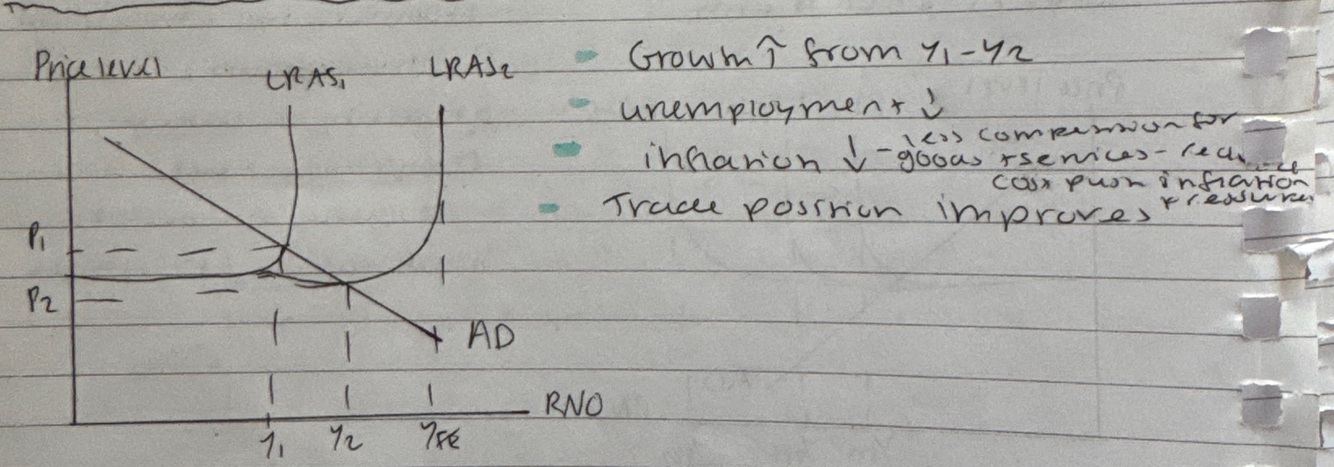 Price level
LRAS1
LRAS2
Growth ↑ from Y1-Y2
unemployment ↓
inflation ↓ - less competition for
goods + services -
cost push inflation
pressures
Trade position improves
P1
P2
AD
RNO
Y1
Y2
YFE